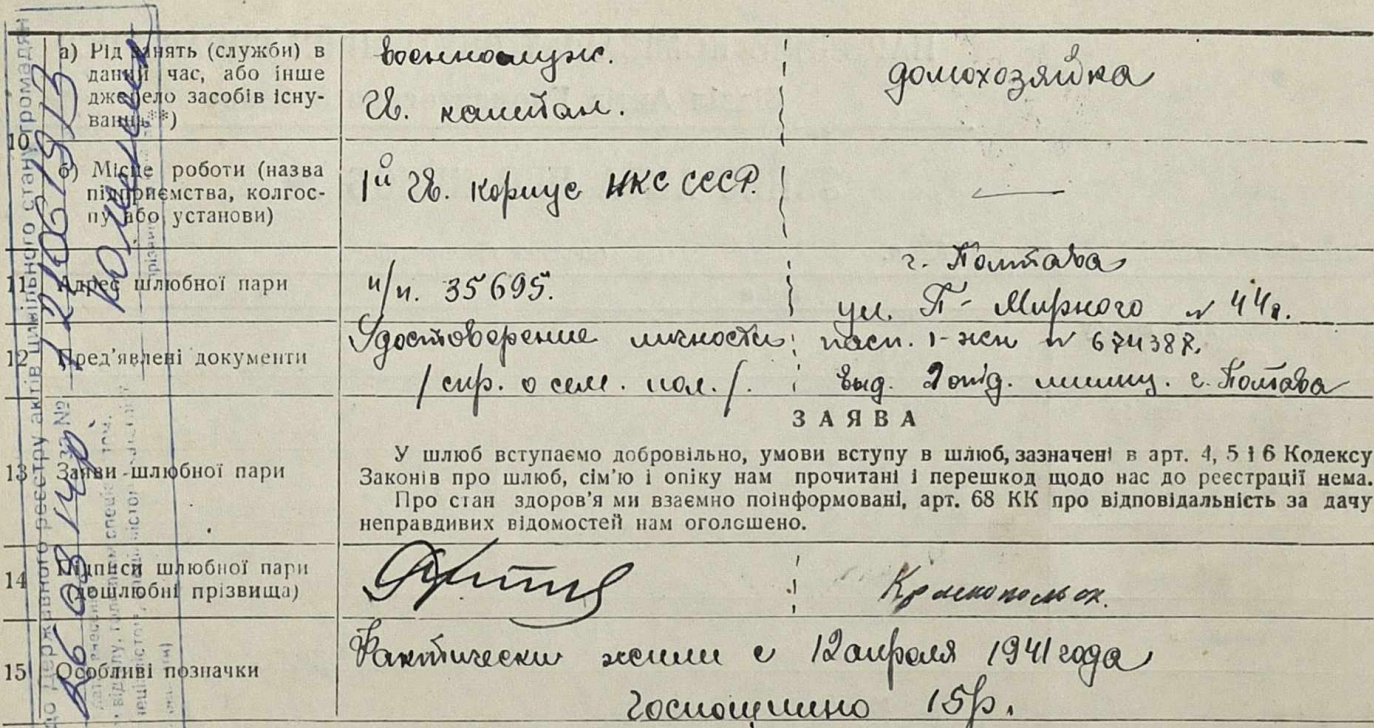 а) Рід занять (служби) в
даний час, або інше
джерело засобів існу-
вання**)
военнослуж.
Гв. капитан.
домохозяйка
10
б) Місце роботи (назва
підприємства, колгос-
пу або установи)
1й Гв. корпус НКС СССР.
—
11 Адрес шлюбної пари
п/п. 35695.
г. Полтава
ул. П- Мирного № 44а.
12 Пред'явлені документи
Удостоверение личности
/ спр. о сем. пол. /.
пасп. 1-жн № 674387,
выд. 2 отд. милиц. г. Полтава
ЗАЯВА
13 Заяви шлюбної пари
У шлюб вступаємо добровільно, умови вступу в шлюб, зазначені в арт. 4, 5 і 6 Кодексу
Законів про шлюб, сім'ю і опіку нам прочитані і перешкод щодо нас до реєстрації нема.
Про стан здоров'я ми взаємно поінформовані, арт. 68 КК про відповідальність за дачу
неправдивих відомостей нам оголошено.
14 Підписи шлюбної пари
(дошлюбні прізвища)
15 Особливі позначки
Фактически жили с 12 апреля 1941 года
Госпошлино 15р.
до Державного реєстру актів цивільного стану громадян
№